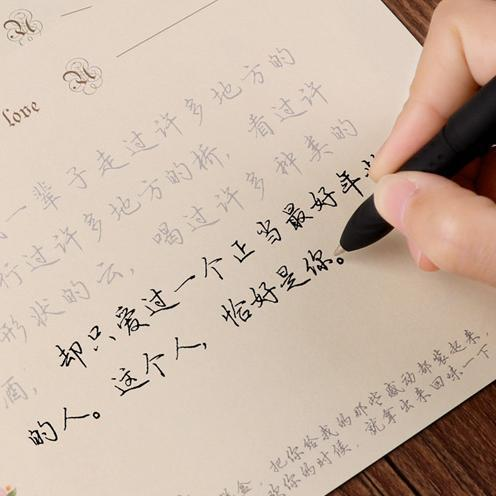 love
一辈子走过许多地方的
行过许多地方的桥，看过许
形状的云，喝过许多种类的
酒，却只爱过一个正当最好年
的人。这个人，恰好是你。
把你给我的那些感动都装起来，
你的时候，就拿出来回味一下